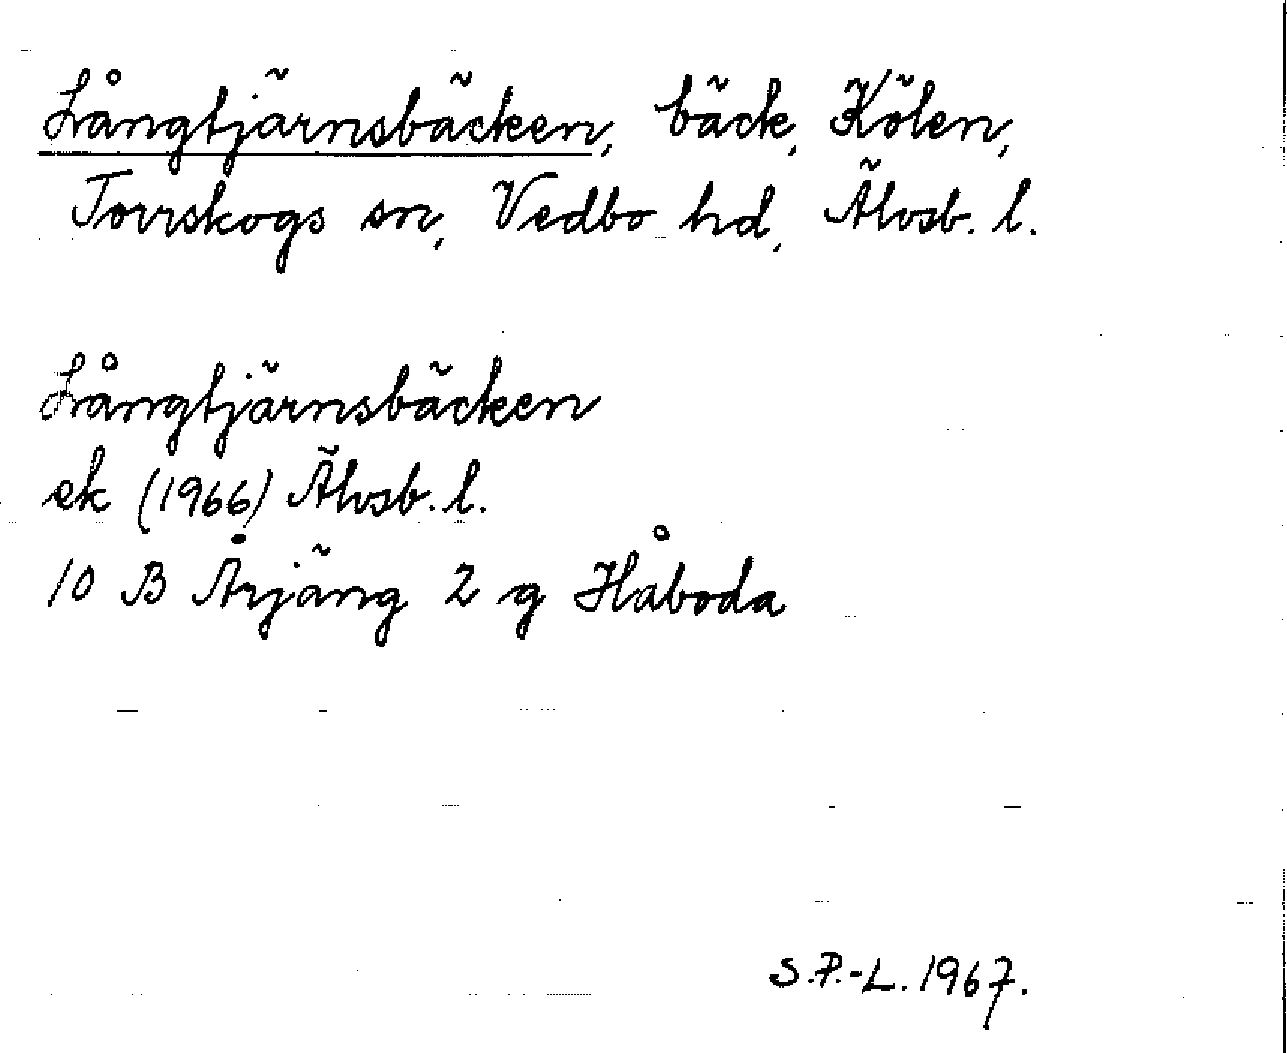 Långtjärnsbäcken, bäck, Kölen,
Torrskogs sn, Vedbo hd, Älvsb. l.
Långtjärnsbäcken
ek (1966) Älvsb. l.
10 B Årjäng 2 g Håboda
S.P.-L. 1967.